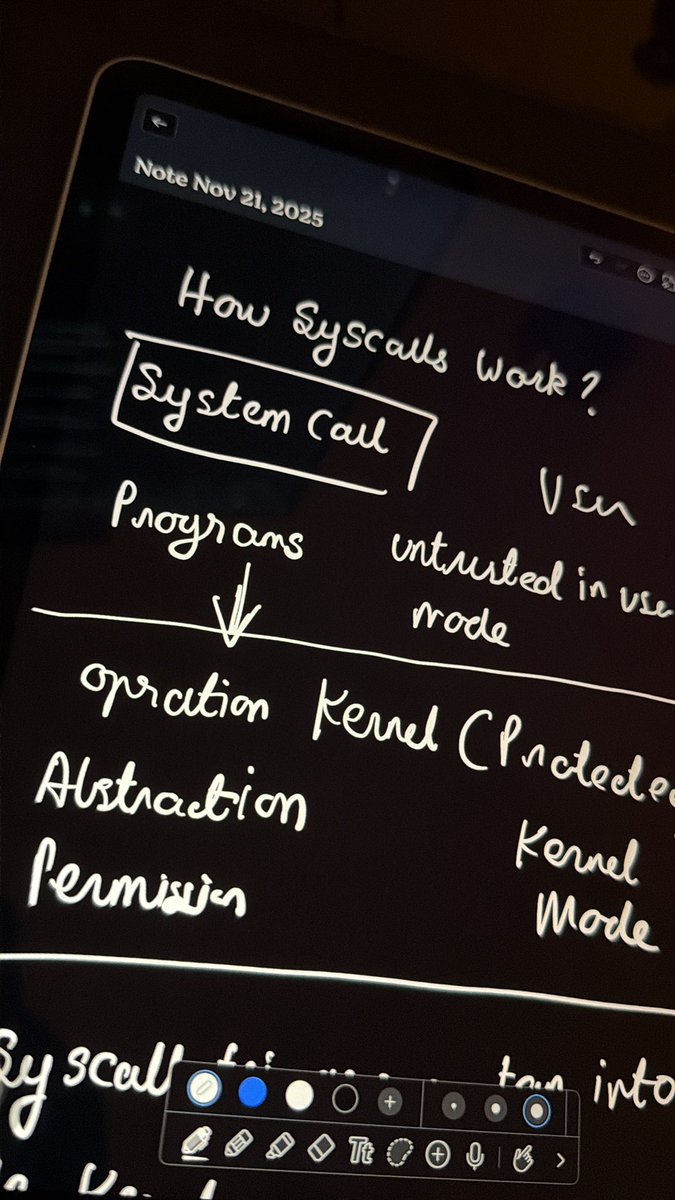 Note Nov 21, 2025
How Syscalls Work?
System Call
User
Programs
untrusted in use
mode
opration Kernel (Protected
Abstraction
Kernel
Permission
Mode
Syscall into
Tt